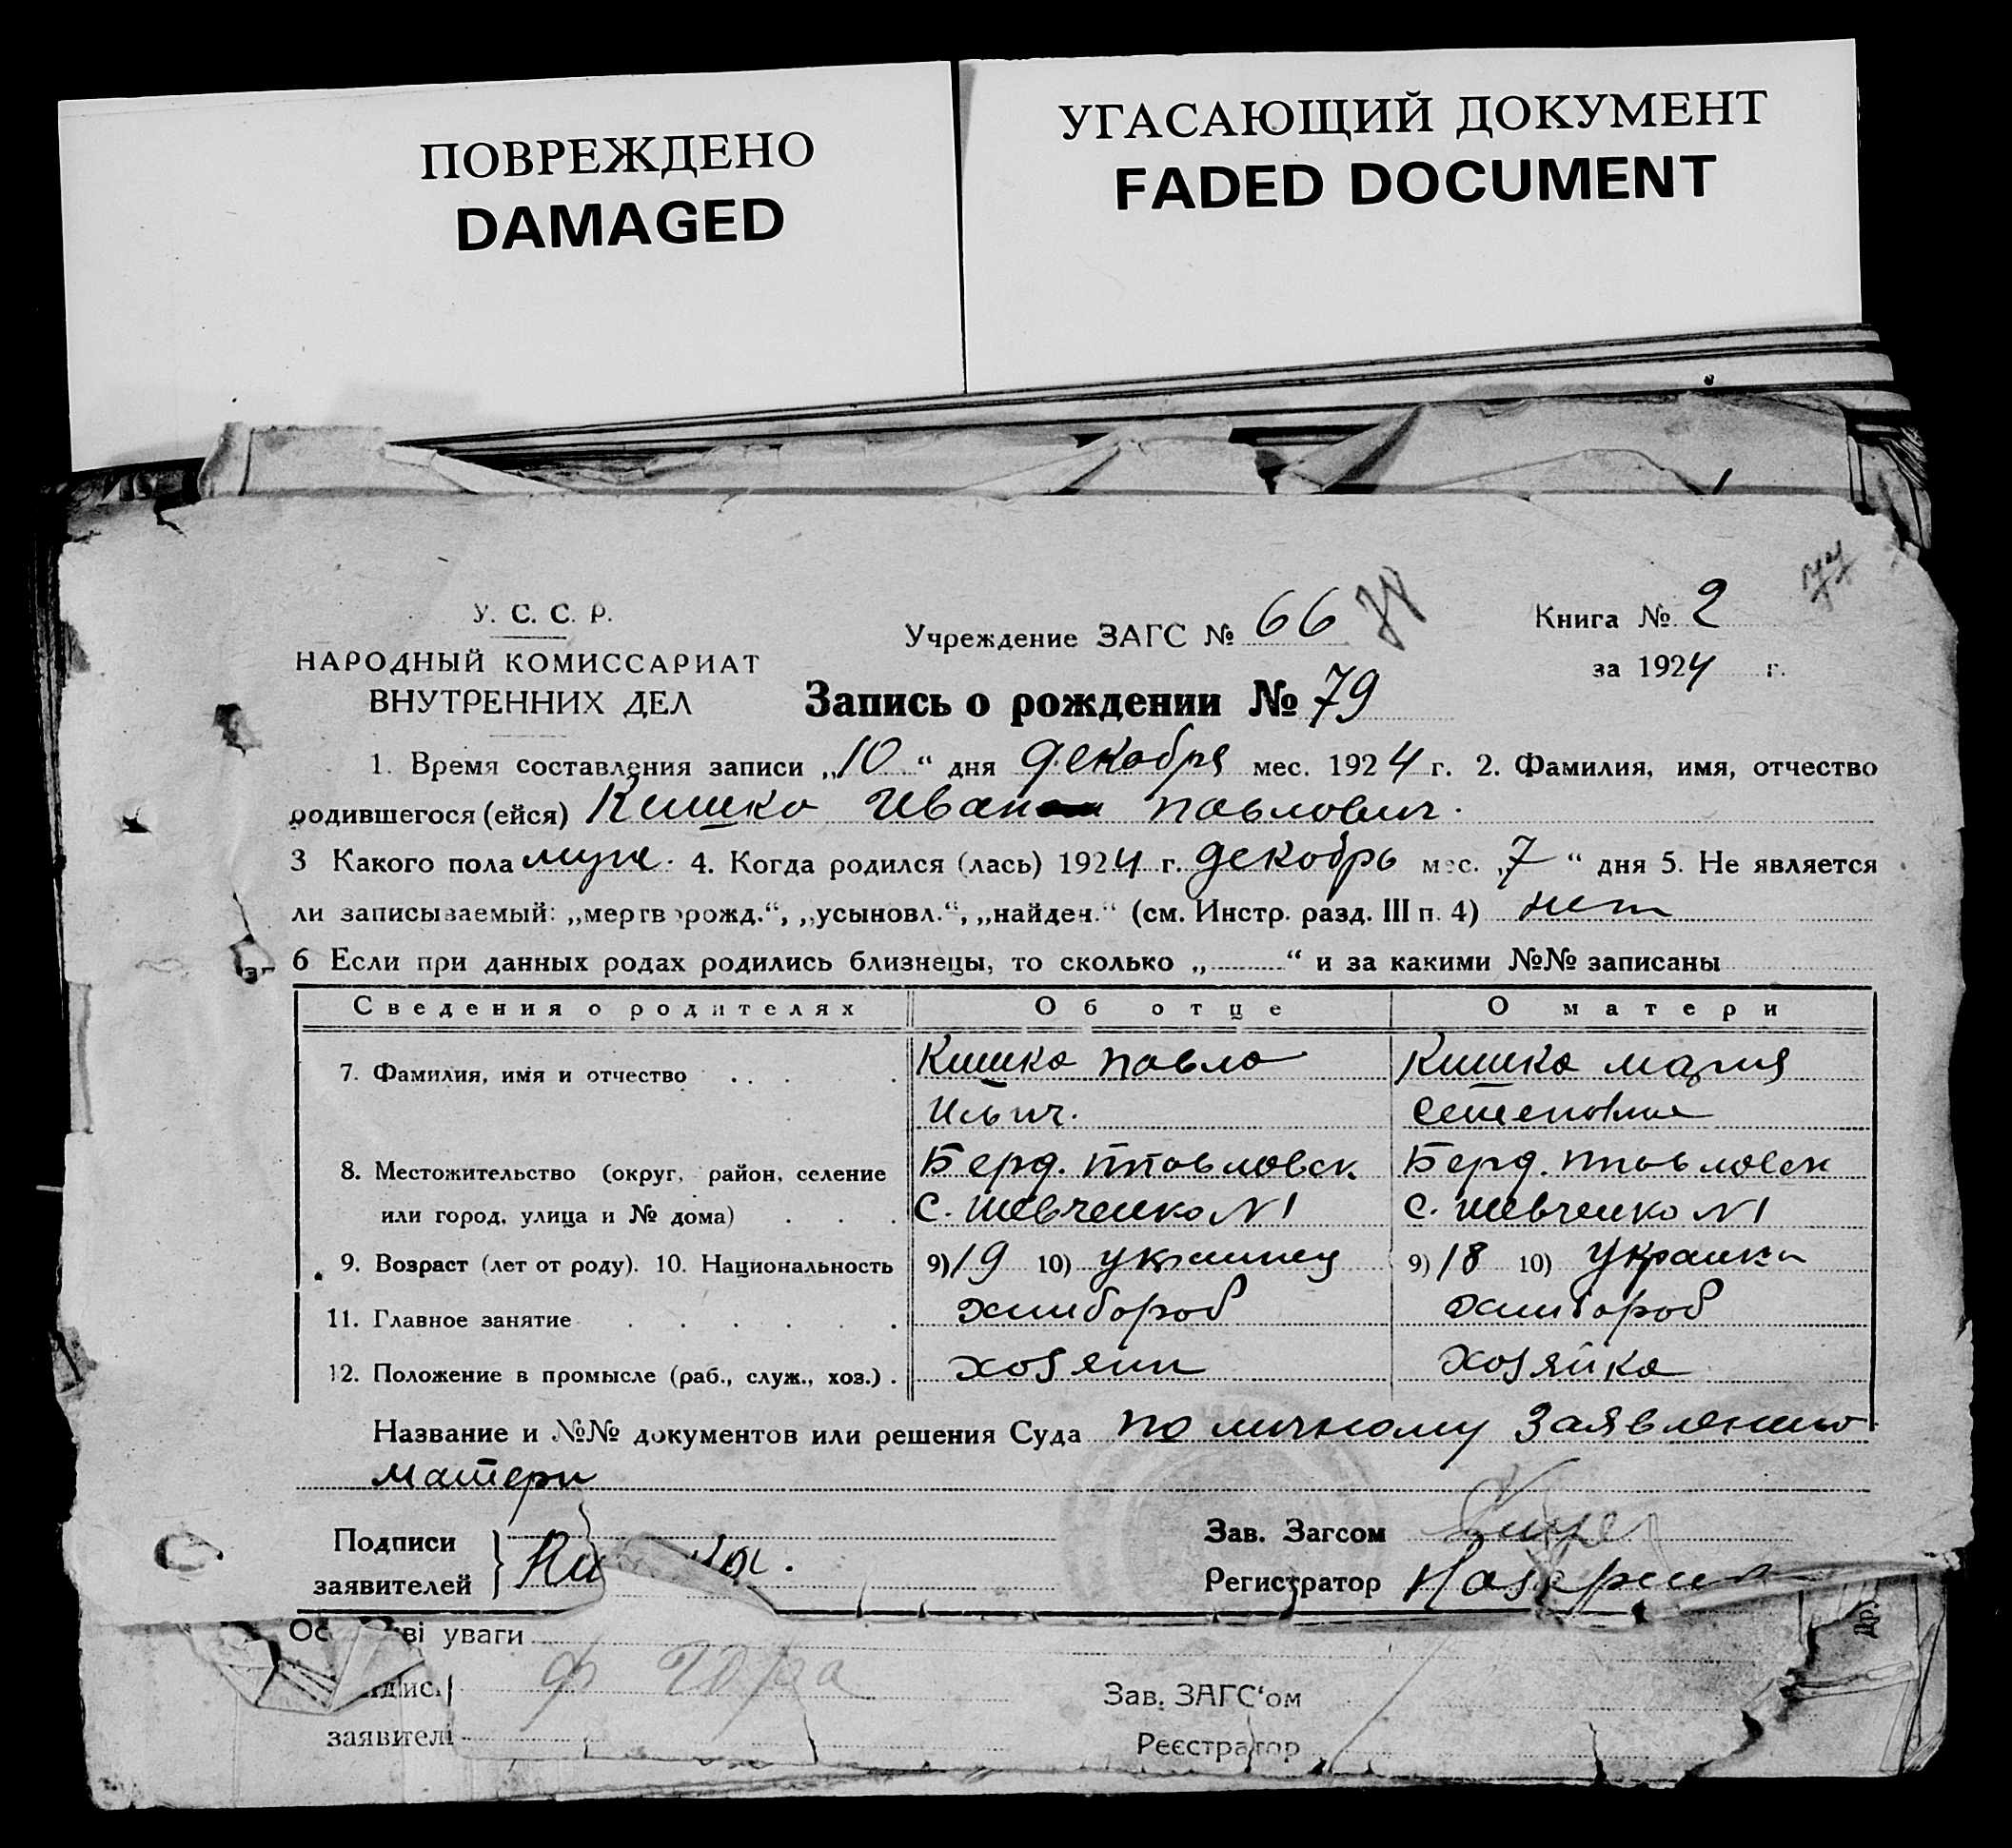 ПОВРЕЖДЕНО
DAMAGED
УГАСАЮЩИЙ ДОКУМЕНТ
FADED DOCUMENT
У. С. С. Р.
НАРОДНЫЙ КОМИССАРИАТ
ВНУТРЕННИХ ДЕЛ
Учреждение ЗАГС № 66
Книга № 2
за 1924 г.
Запись о рождении № 79
1. Время составления записи „10“ дня декабря мес. 1924 г. 2. Фамилия, имя, отчество
родившегося (ейся) Кишко Иван Павлович.
3 Какого пола муж. 4. Когда родился (лась) 1924 г. декабрь мес. „7“ дня 5. Не является
ли записываемый: „мертворожд.“, „усыновл.“, „найден.“ (см. Инстр. разд. III п. 4) нет
6 Если при данных родах родились близнецы, то сколько „ “ и за какими №№ записаны
Сведения о родителях Об отце О матери
7. Фамилия, имя и отчество Кишко Павло Кишко Мария
Ильич. Семеновна
8. Местожительство (округ, район, селение Берд. ппавловск Берд. ппавловск
или город, улица и № дома) С. Шевченко N1 С. Шевченко N1
9. Возраст (лет от роду). 10. Национальность 9) 19 10) украинец 9) 18 10) Украинка
11. Главное занятие хлибороб хлибороб
12. Положение в промысле (раб., служ., хоз.) хозяин хозяйка
Название и №№ документов или решения Суда по личному заявлению
матери
Подписи
заявителей
Зав. Загсом
Регистратор
уваги
заявителі
Зав. ЗАГС‘ом
Реєстратор